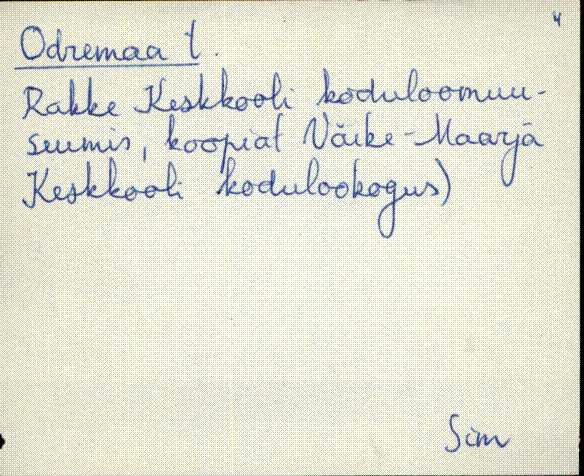 4
Odremaa t.
Rakke Keskkooli koduloomuu-
seumis, koopiat Väike-Maarja
Keskkooli kodulookogus)
Sim